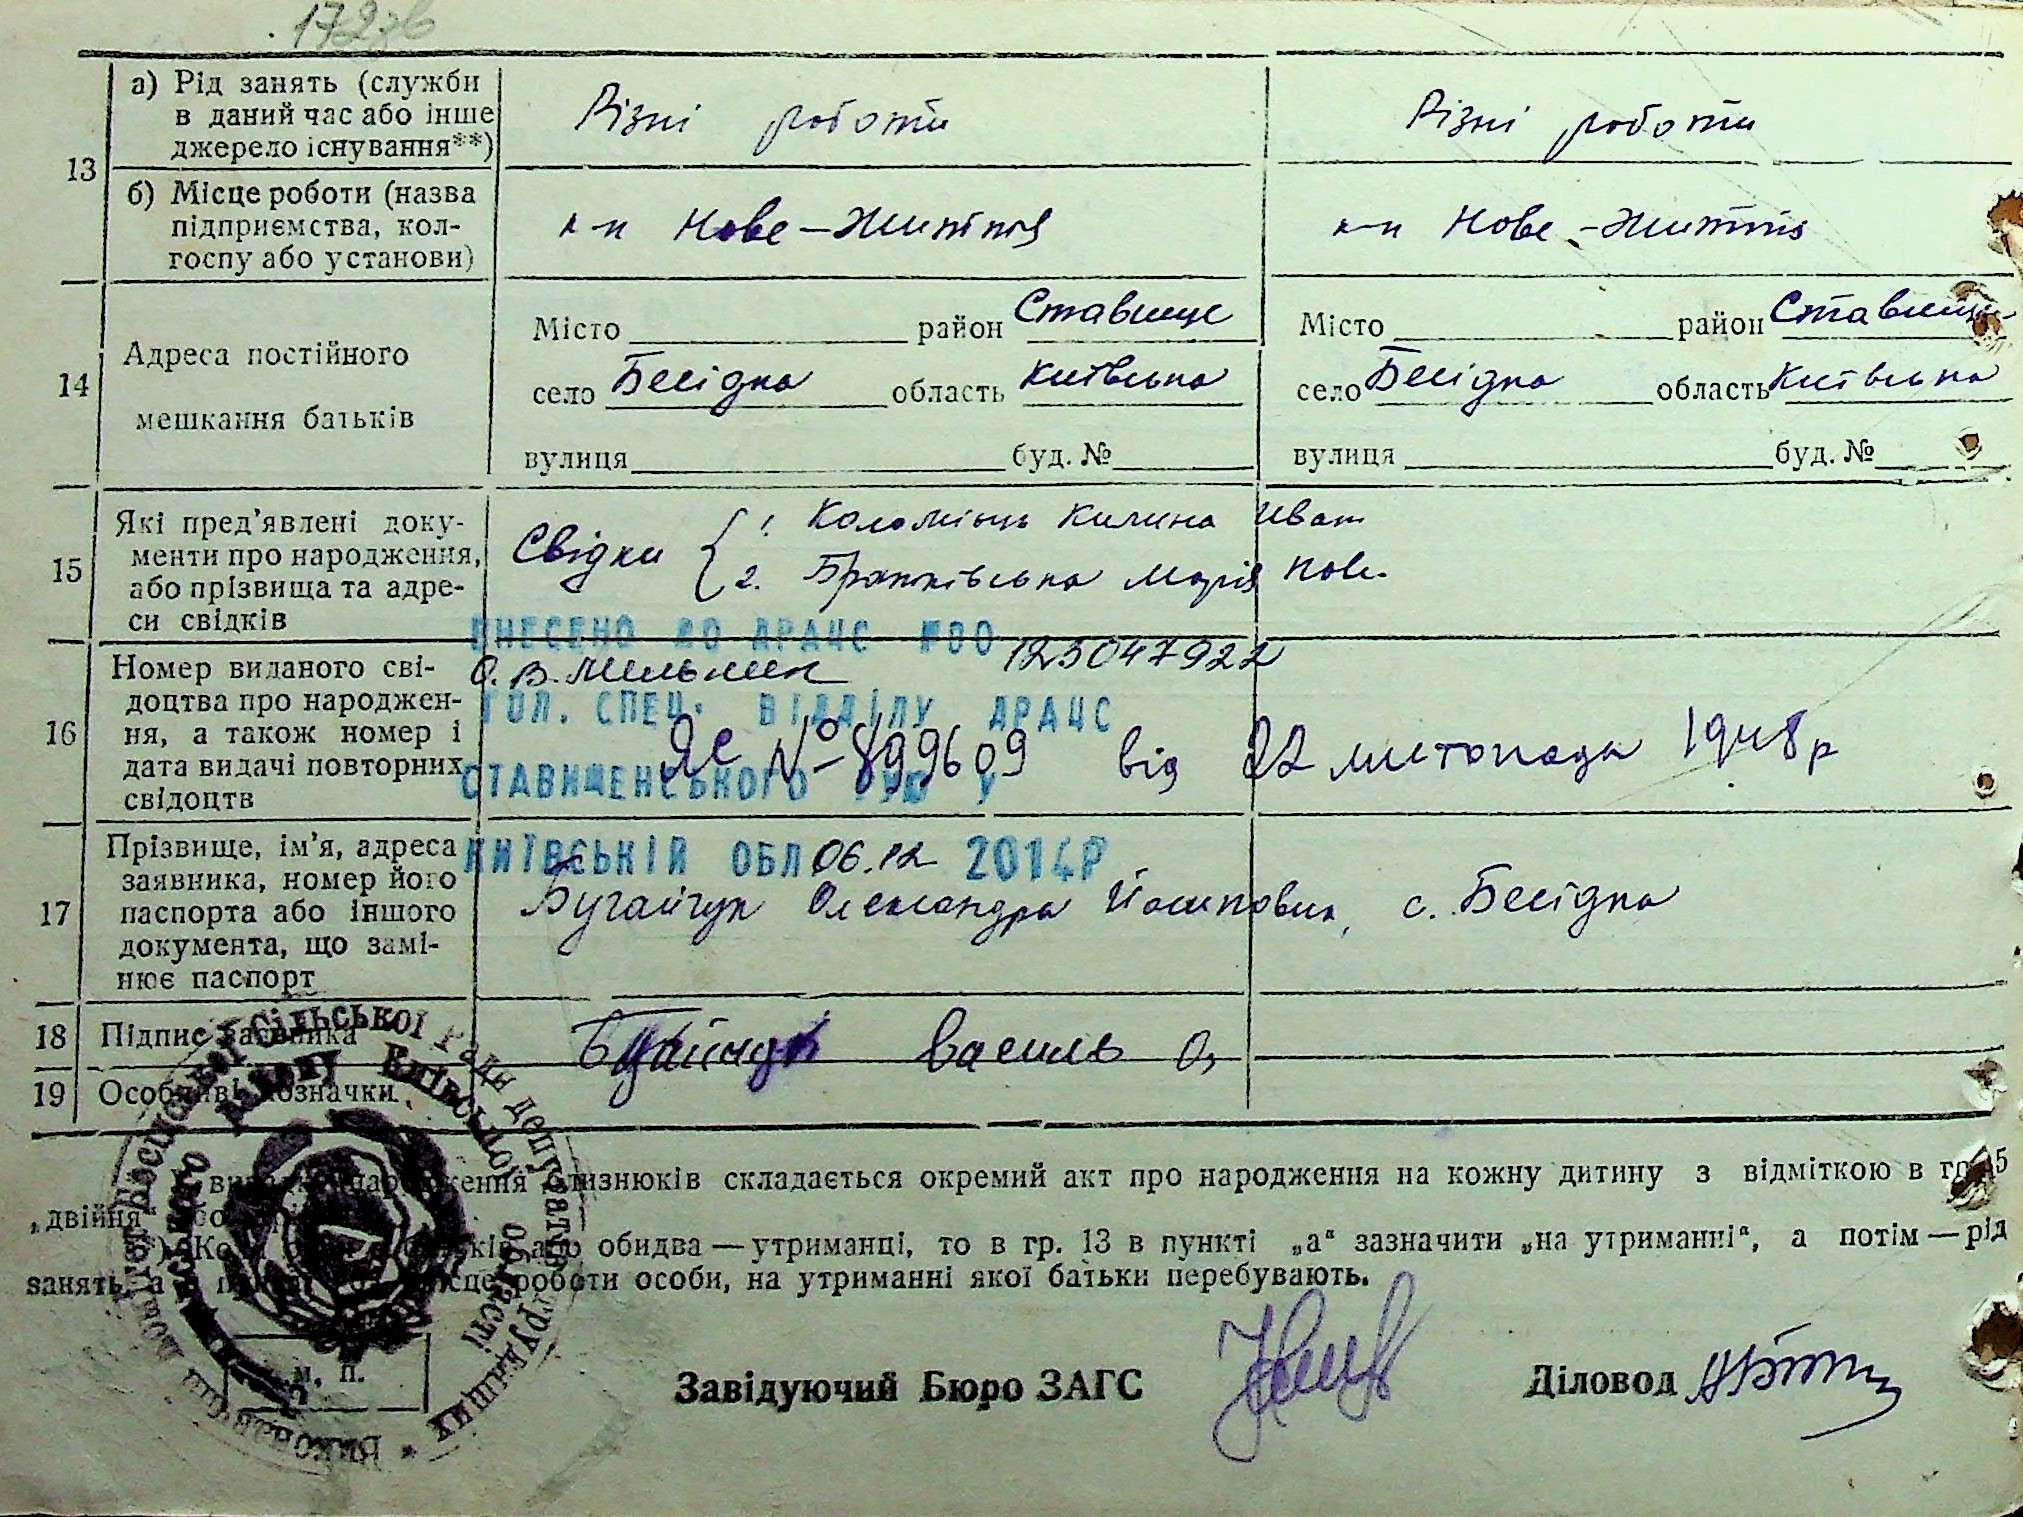 а) Рід занять (служби
в даний час або інше
джерело існування**)
Різні роботи
Різні роботи
13
б) Місце роботи (назва
підприємства, кол-
госпу або установи)
к-п Нове-Життя
к-п Нове-Життя
14
Адреса постійного
мешкання батьків
Місто район Ставище
село Бесідка область Київська
вулиця буд. №
Місто район Ставище
село Бесідка область Київська
вулиця буд. №
15
Які пред'явлені доку-
менти про народження,
або прізвища та адре-
си свідків
Свідки
1. Коломієць Килина Иван
2. Марія Пав.
ВНЕСЕНО ДО ДРАЦС
О.В. Мельник 123047922
ГОЛ. СПЕЦ. ВІДДІЛУ ДРАЦС
СТАВИЩЕНСЬКОГО У
КИЇВСЬКІЙ ОБЛ 06.12 2014Р
16
Номер виданого сві-
доцтва про народжен-
ня, а також номер і
дата видачі повторних
свідоцтв
ЯС № 899609 від 22 листопада 1948 р
17
Прізвище, ім'я, адреса
заявника, номер його
паспорта або іншого
документа, що замі-
нює паспорт
Бугайчук Олександра Йосиповна, с. Бесідка
18
Підпис заявника
Бугайчук Василь
19
Особливі позначки
народження близнюків складається окремий акт про народження на кожну дитину з відміткою в гр. 5
„двійня"
або обидва — утриманці, то в гр. 13 в пункті „а" зазначити „на утриманні", а потім — рід
занять, а в місце роботи особи, на утриманні якої батьки перебувають.
Сільської Ради депутатів трудящих
Київської області
м. п.
Завідуючий Бюро ЗАГС
Діловод